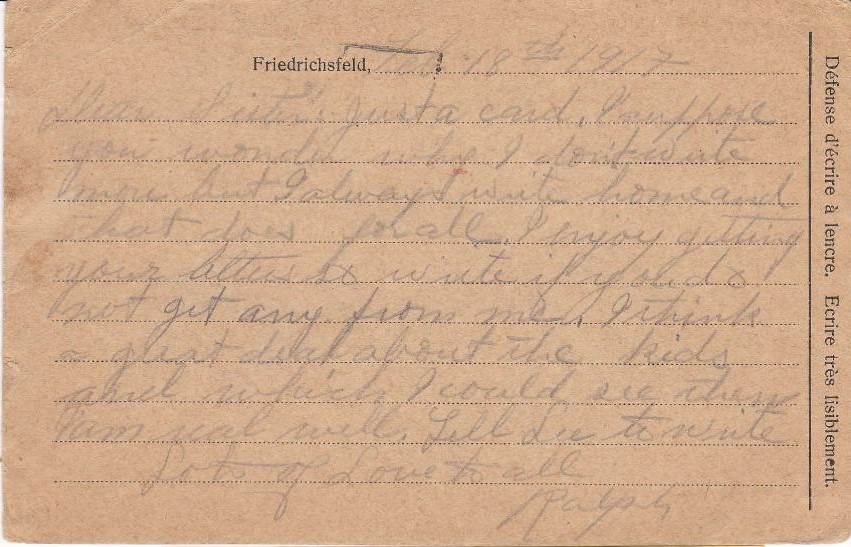 Friedrichsfeld, Feb. 18th 1917
Dear Sister: Just a card, I suppose
you wonder why I don't write
more but I always write home and
that does for all. I enjoy getting
your letters so write if you do
not get any from me. I think
a great deal about the kids
and which I could see them
I am real well. Tell to write
Lots of Love to all
Ralph
Défense d'écrire à lencre. Ecrire très lisiblement.